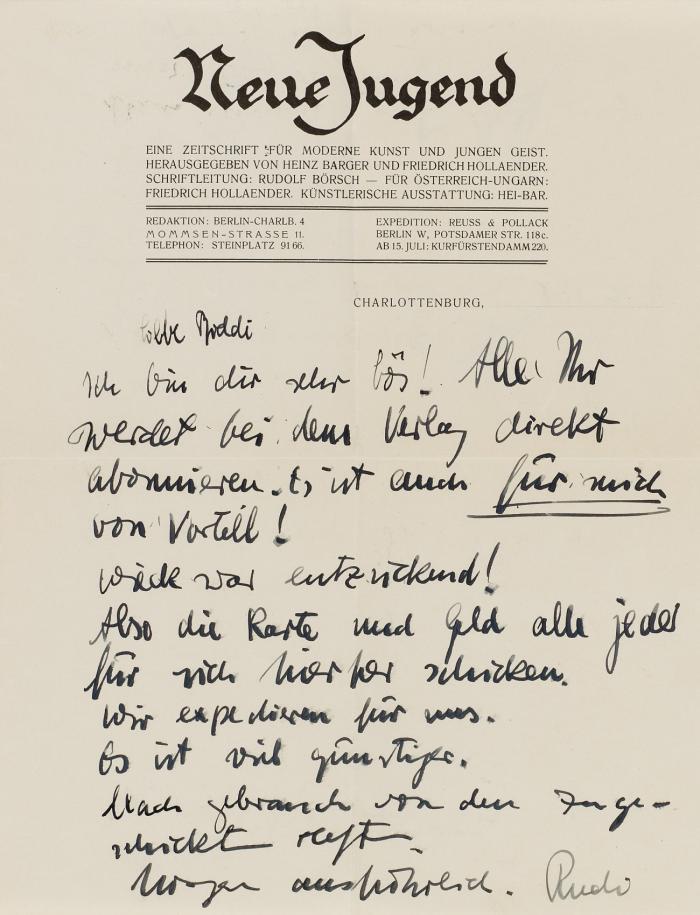 Neue Jugend
EINE ZEITSCHRIFT FÜR MODERNE KUNST UND JUNGEN GEIST.
HERAUSGEGEBEN VON HEINZ BARGER UND FRIEDRICH HOLLAENDER.
SCHRIFTLEITUNG: RUDOLF BÖRSCH — FÜR ÖSTERREICH-UNGARN:
FRIEDRICH HOLLAENDER. KÜNSTLERISCHE AUSSTATTUNG: HEI-BAR.
REDAKTION: BERLIN-CHARLB. 4
MOMMSEN-STRASSE 11.
TELEPHON: STEINPLATZ 91 66.
EXPEDITION: REUSS & POLLACK
BERLIN W, POTSDAMER STR. 118c.
AB 15. JULI: KURFÜRSTENDAMM 220.
CHARLOTTENBURG,
Ich bin dir sehr bös! Alle Ihr
werdet bei dem Verlag direkt
abonnieren. Es ist auch für mich
von Vorteil!
war entzückend!
Also die Karte und Geld alle jeder
für sich hierher schicken.
Wir expedieren für uns.
Es ist viel günstiger.
Mach gebrauch von den zuge-
schickten
Morgen ausführlich. Rudi